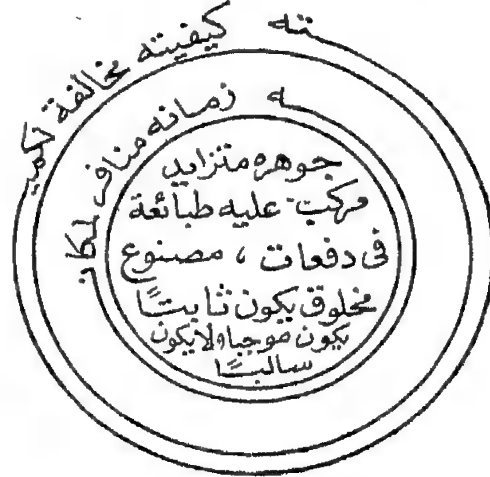 كيفيته مخالفة لكميته
زمانه منافر لمكانه
جوهره متزايد
مركب عليه طبائعة
فى دفعات ، مصنوع
مخلوق يكون ثابتًا
يكون موجبا ولا يكون
سالبًا